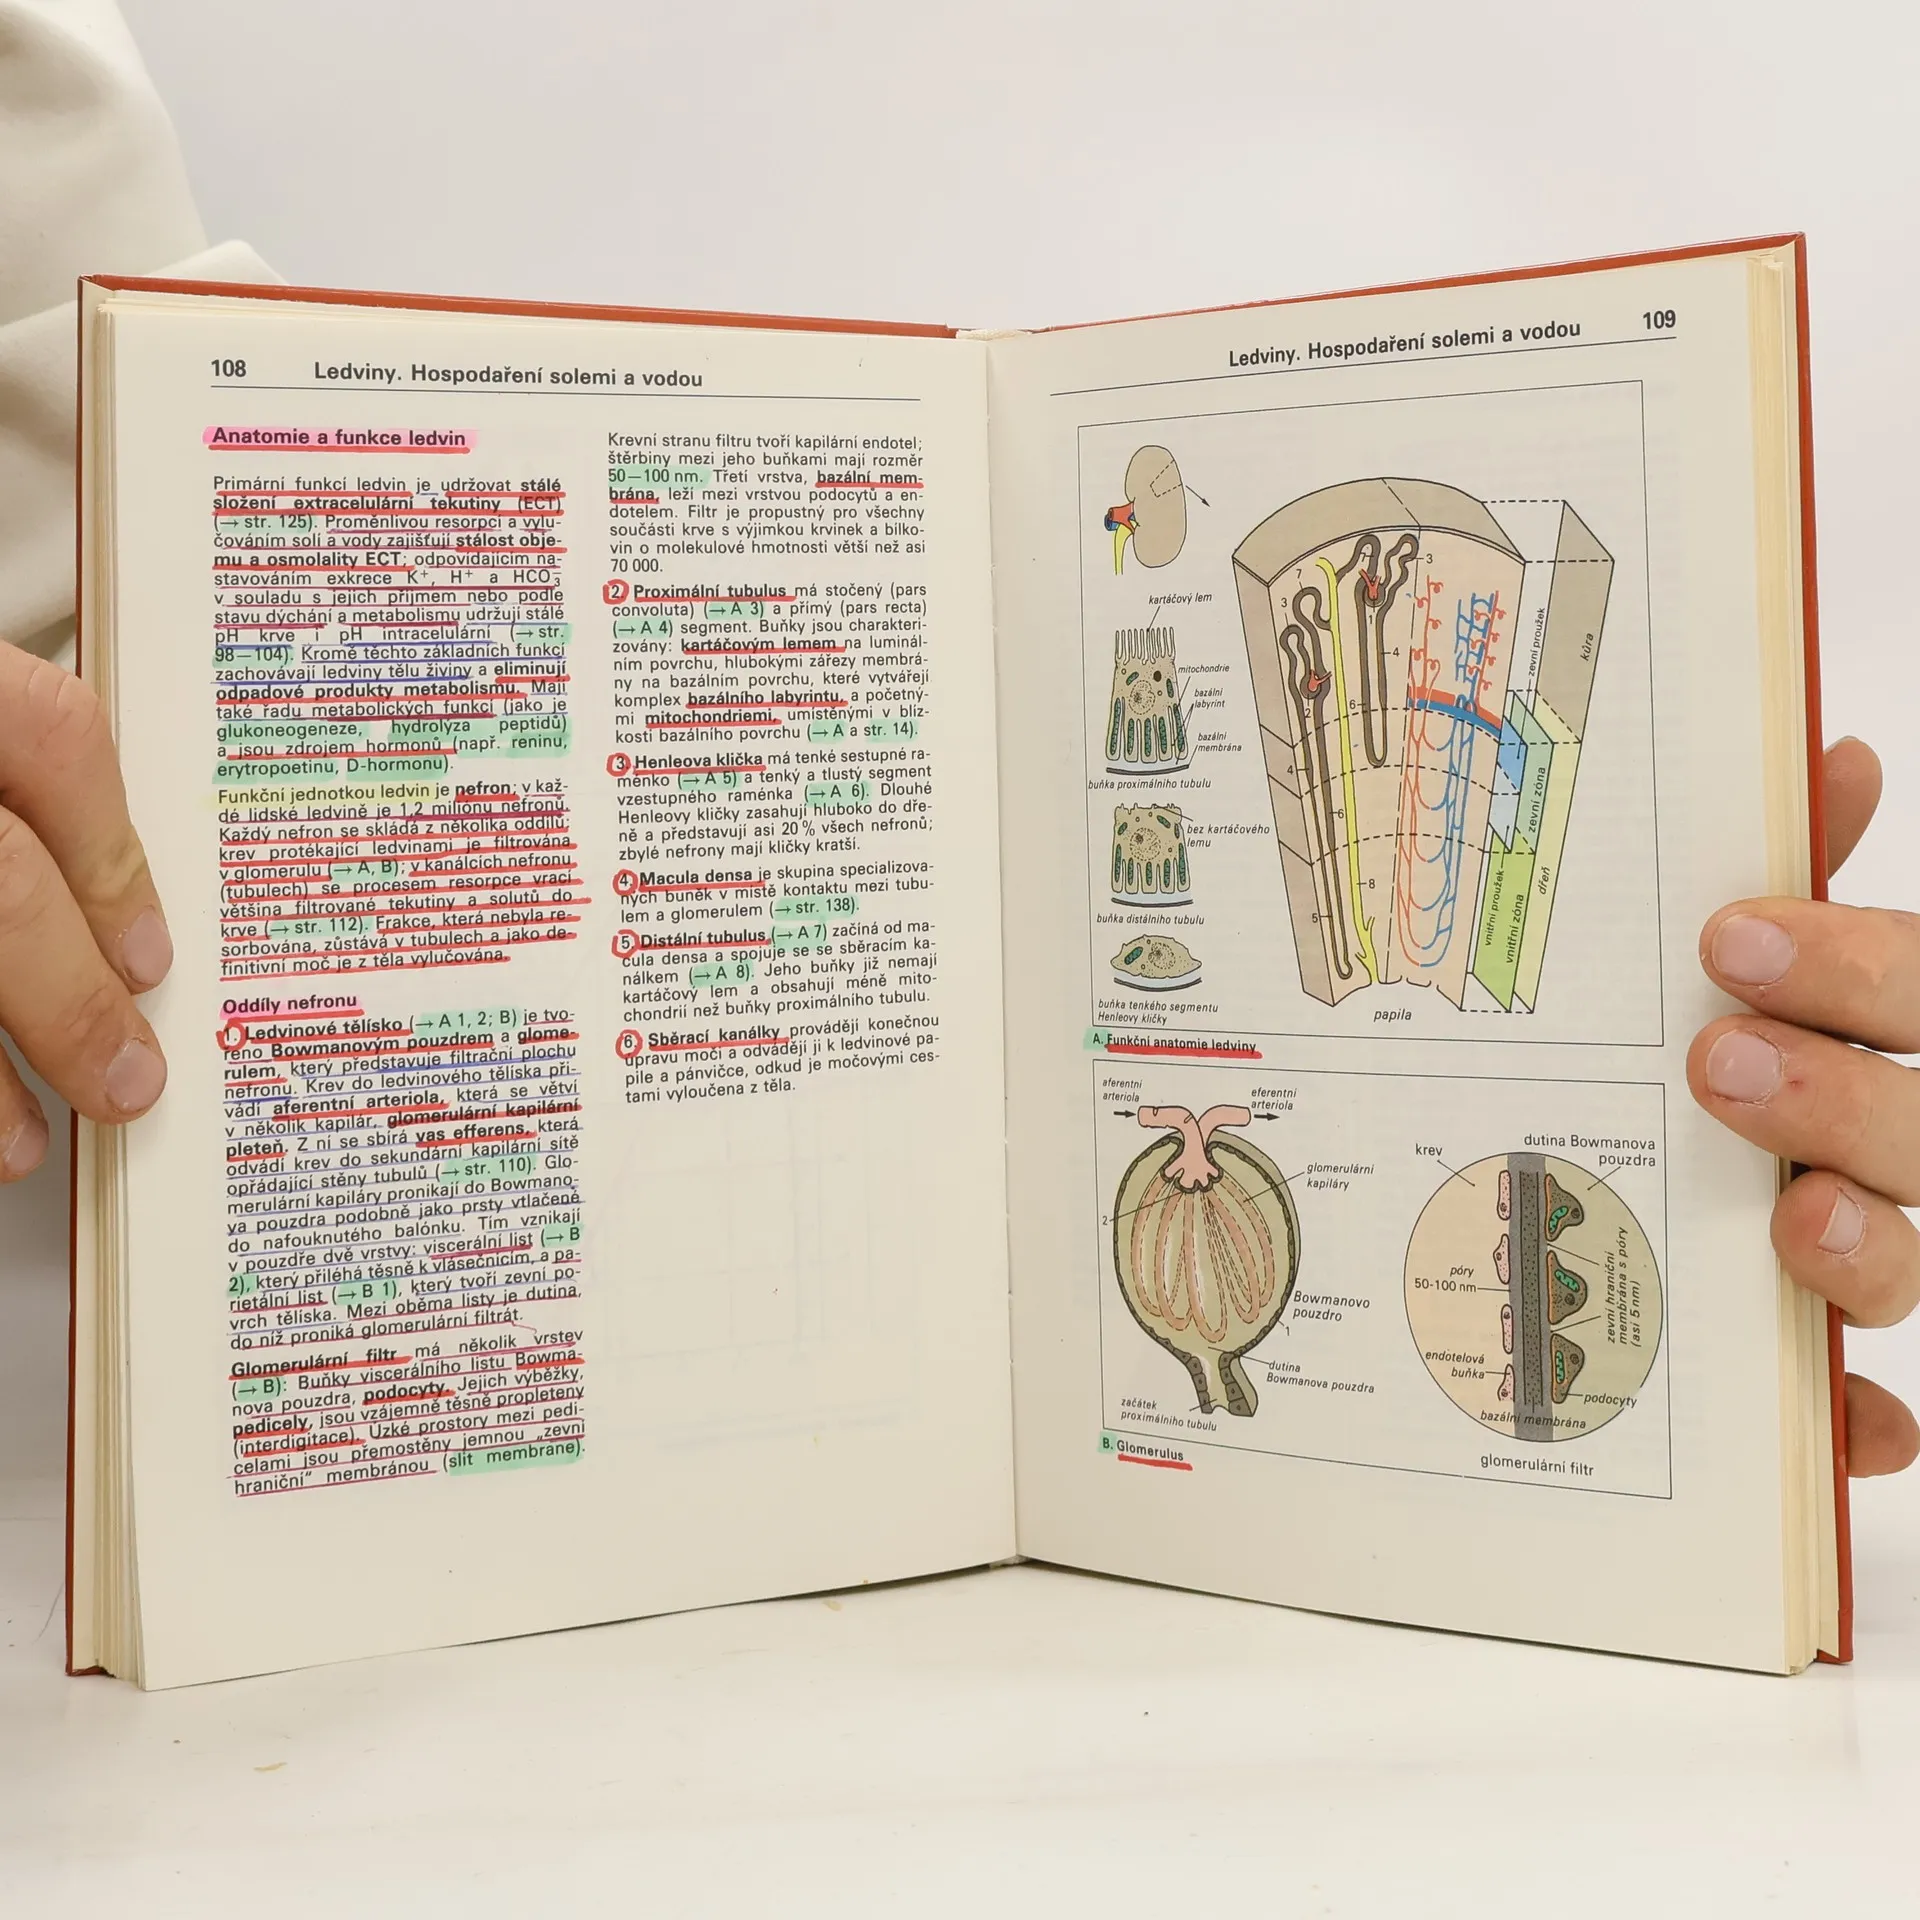 108 Ledviny. Hospodaření solemi a vodou
Anatomie a funkce ledvin
Primární funkcí ledvin je udržovat stálé
složení extracelulární tekutiny (ECT)
(→ str. 125). Proměnlivou resorpcí a vylu-
čováním solí a vody zajišťují stálost obje-
mu a osmolality ECT; odpovídajícím na-
stavováním exkrece K⁺, H⁺ a HCO₃⁻
v souladu s jejich příjmem nebo podle
stavu dýchání a metabolismu udržují stálé
pH krve i pH intracelulární (→ str.
98–104). Kromě těchto základních funkcí
zachovávají ledviny tělu živiny a eliminují
odpadové produkty metabolismu. Mají
také řadu metabolických funkcí (jako je
glukoneogeneze, hydrolýza peptidů)
a jsou zdrojem hormonů (např. reninu,
erytropoetinu, D-hormonu).
Funkční jednotkou ledvin je nefron; v kaž-
dé lidské ledvině je 1,2 miliónu nefronů.
Každý nefron se skládá z několika oddílů;
krev protékající ledvinami je filtrována
v glomerulu (→ A, B); v kanálcích nefronu
(tubulech) se procesem resorpce vrací
většina filtrované tekutiny a solutů do
krve (→ str. 112). Frakce, která nebyla re-
sorbována, zůstává v tubulech a jako de-
finitivní moč je z těla vylučována.
Oddíly nefronu
1. Ledvinové tělísko (→ A 1, 2; B) je tvo-
řeno Bowmanovým pouzdrem a glome-
rulem, který představuje filtrační plochu
nefronu. Krev do ledvinového tělíska při-
vádí aferentní arteriola, která se větví
v několik kapilár, glomerulární kapilární
pleteň. Z ní se sbírá vas efferens, která
odvádí krev do sekundární kapilární sítě
opřádající stěny tubulů (→ str. 110). Glo-
merulární kapiláry pronikají do Bowmano-
va pouzdra podobně jako prsty vtlačené
do nafouknutého balónku. Tím vznikají
v pouzdře dvě vrstvy: viscerální list (→ B
2), který přiléhá těsně k vlásečnicím, a pa-
rietální list (→ B 1), který tvoří zevní po-
vrch tělíska. Mezi oběma listy je dutina,
do níž proniká glomerulární filtrát.
Glomerulární filtr má několik vrstev
(→ B): Buňky viscerálního listu Bowma-
nova pouzdra, podocyty. Jejich výběžky,
pedicely, jsou vzájemně těsně propleteny
(interdigitace). Úzké prostory mezi pedi-
celami jsou přemostěny jemnou „zevní
hraniční“ membránou (slit membrane).
Krevní stranu filtru tvoří kapilární endotel;
štěrbiny mezi jeho buňkami mají rozměr
50–100 nm. Třetí vrstva, bazální mem-
brána, leží mezi vrstvou podocytů a en-
dotelem. Filtr je propustný pro všechny
součásti krve s výjimkou krvinek a bílko-
vin o molekulové hmotnosti větší než asi
70 000.
2. Proximální tubulus má stočený (pars
convoluta) (→ A 3) a přímý (pars recta)
(→ A 4) segment. Buňky jsou charakteri-
zovány: kartáčovým lemem na luminál-
ním povrchu, hlubokými zářezy membrá-
ny na bazálním povrchu, které vytvářejí
komplex bazálního labyrintu, a početný-
mi mitochondriemi, umístěnými v blíz-
kosti bazálního povrchu (→ A a str. 14).
3. Henleova klička má tenké sestupné ra-
ménko (→ A 5) a tenký a tlustý segment
vzestupného raménka (→ A 6). Dlouhé
Henleovy kličky zasahují hluboko do dře-
ně a představují asi 20 % všech nefronů;
zbylé nefrony mají kličky kratší.
4. Macula densa je skupina specializova-
ných buněk v místě kontaktu mezi tubu-
lem a glomerulem (→ str. 138).
5. Distální tubulus (→ A 7) začíná od ma-
cula densa a spojuje se se sběracím ka-
nálkem (→ A 8). Jeho buňky již nemají
kartáčový lem a obsahují méně mito-
chondrií než buňky proximálního tubulu.
6. Sběrací kanálky provádějí konečnou
úpravu moči a odvádějí ji k ledvinové pa-
pile a pánvičce, odkud je močovými ces-
tami vyloučena z těla.
Ledviny. Hospodaření solemi a vodou 109
kartáčový lem
mitochondrie
bazální
labyrint
bazální
membrána
buňka proximálního tubulu
bez kartáčového
lemu
buňka distálního tubulu
buňka tenkého segmentu
Henleovy kličky
7
3
2
4
6
5
7
1
3
4
6
8
papila
zevní proužek
kůra
zevní zóna
vnitřní proužek
vnitřní zóna
dřeň
A. Funkční anatomie ledviny
aferentní
arteriola
eferentní
arteriola
glomerulární
kapiláry
2
Bowmanovo
pouzdro
1
dutina
Bowmanova pouzdra
začátek
proximálního tubulu
krev
dutina Bowmanova
pouzdra
póry
50-100 nm
zevní hraniční
membrána s póry
(asi 5 nm)
endotelová
buňka
podocyty
bazální membrána
glomerulární filtr
B. Glomerulus